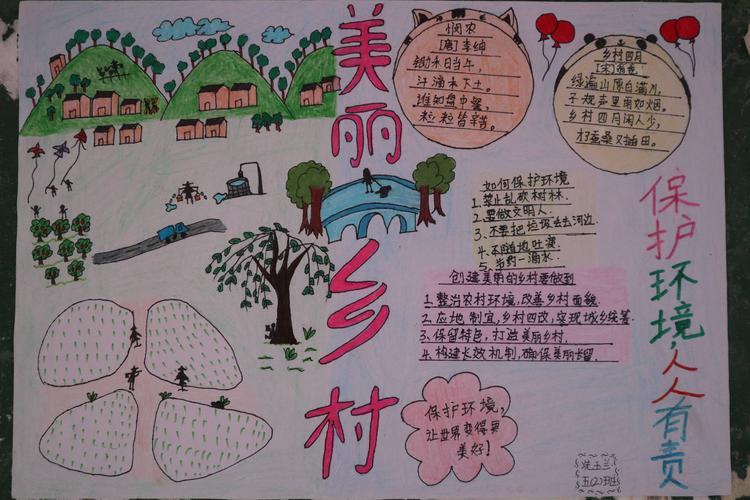 美丽乡村
悯农
[唐]李绅
锄禾日当午,
汗滴禾下土。
谁知盘中餐,
粒粒皆辛苦。
乡村四月
[宋]翁卷
绿遍山原白满川,
子规声里雨如烟。
乡村四月闲人少,
才了蚕桑又插田。
如何保护环境
1.禁止乱砍树林.
2.要做文明人.
3.不要把垃圾丢去河边
4.不随地吐痰
5.节约一滴水.
创建美丽的乡村要做到
1.整治农村环境,改善乡村面貌.
2.应地制宜,乡村四改,实现城乡统筹
3.保留特色,打造美丽乡村.
4.构建长效机制,确保美丽长留.
保护环境,
让世界变得更
美好!
保护环境,人人有责
五(2)班